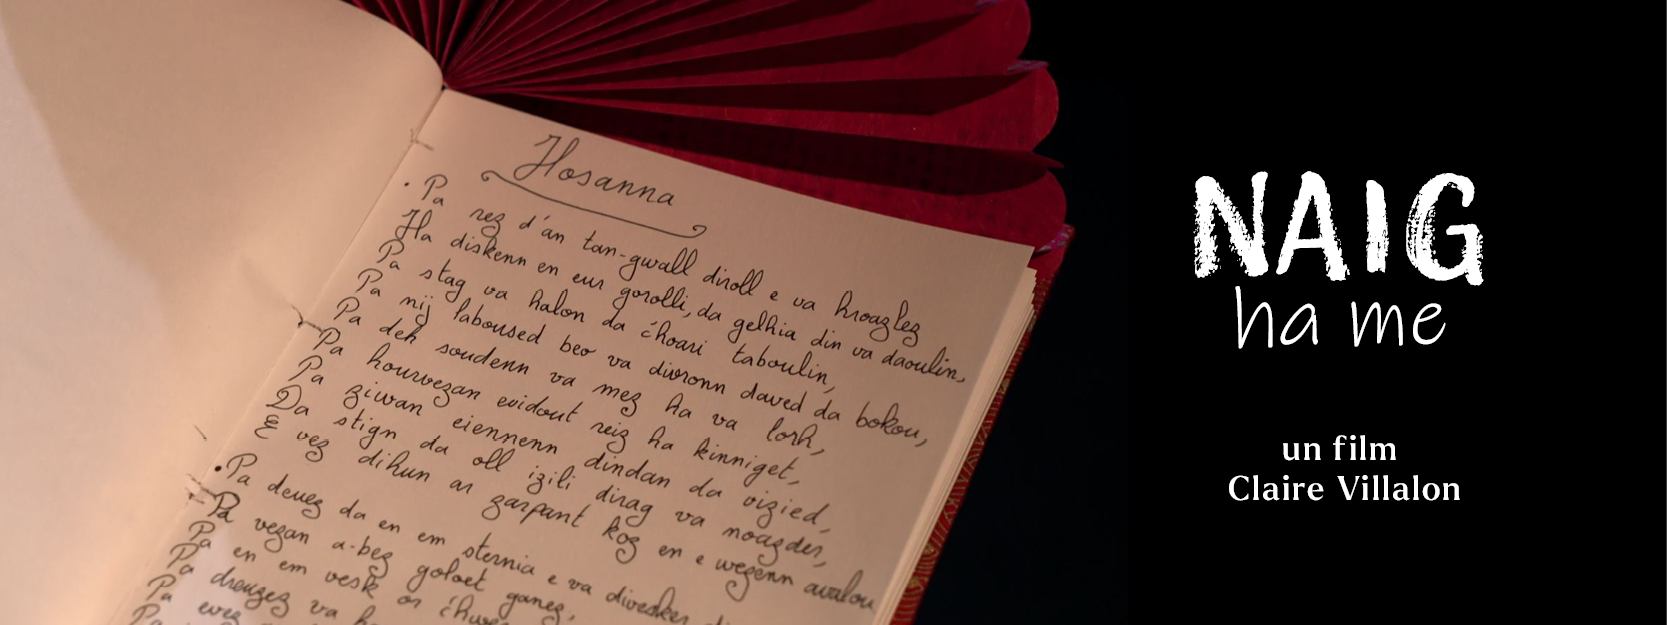 Hosanna
. Pa rez d'an tan-gwall diroll e va kroazlez
Ha diskenn en eur gorolli, da gelhia din va daoulin,
Pa stag va halon da c'hoari taboulin,
Pa nij laboused beo va divronn daved da bokou,
Pa deh soudenn va mez ha va lorh,
Pa hourvezan evidout reiz ha kinniget,
Pa ziwan eiennenn dindan da vizied,
Da stign da oll izili dirag va noazder,
E vez dihun ar zarpant koz en e wezenn avalou.
. Pa deuez da en em sternia e va divesker
Pa vezan a-bez goloet ganez,
Pa en em vesk or
Pa dreuzez va
Pa
NAIG
ha me
un film
Claire Villalon